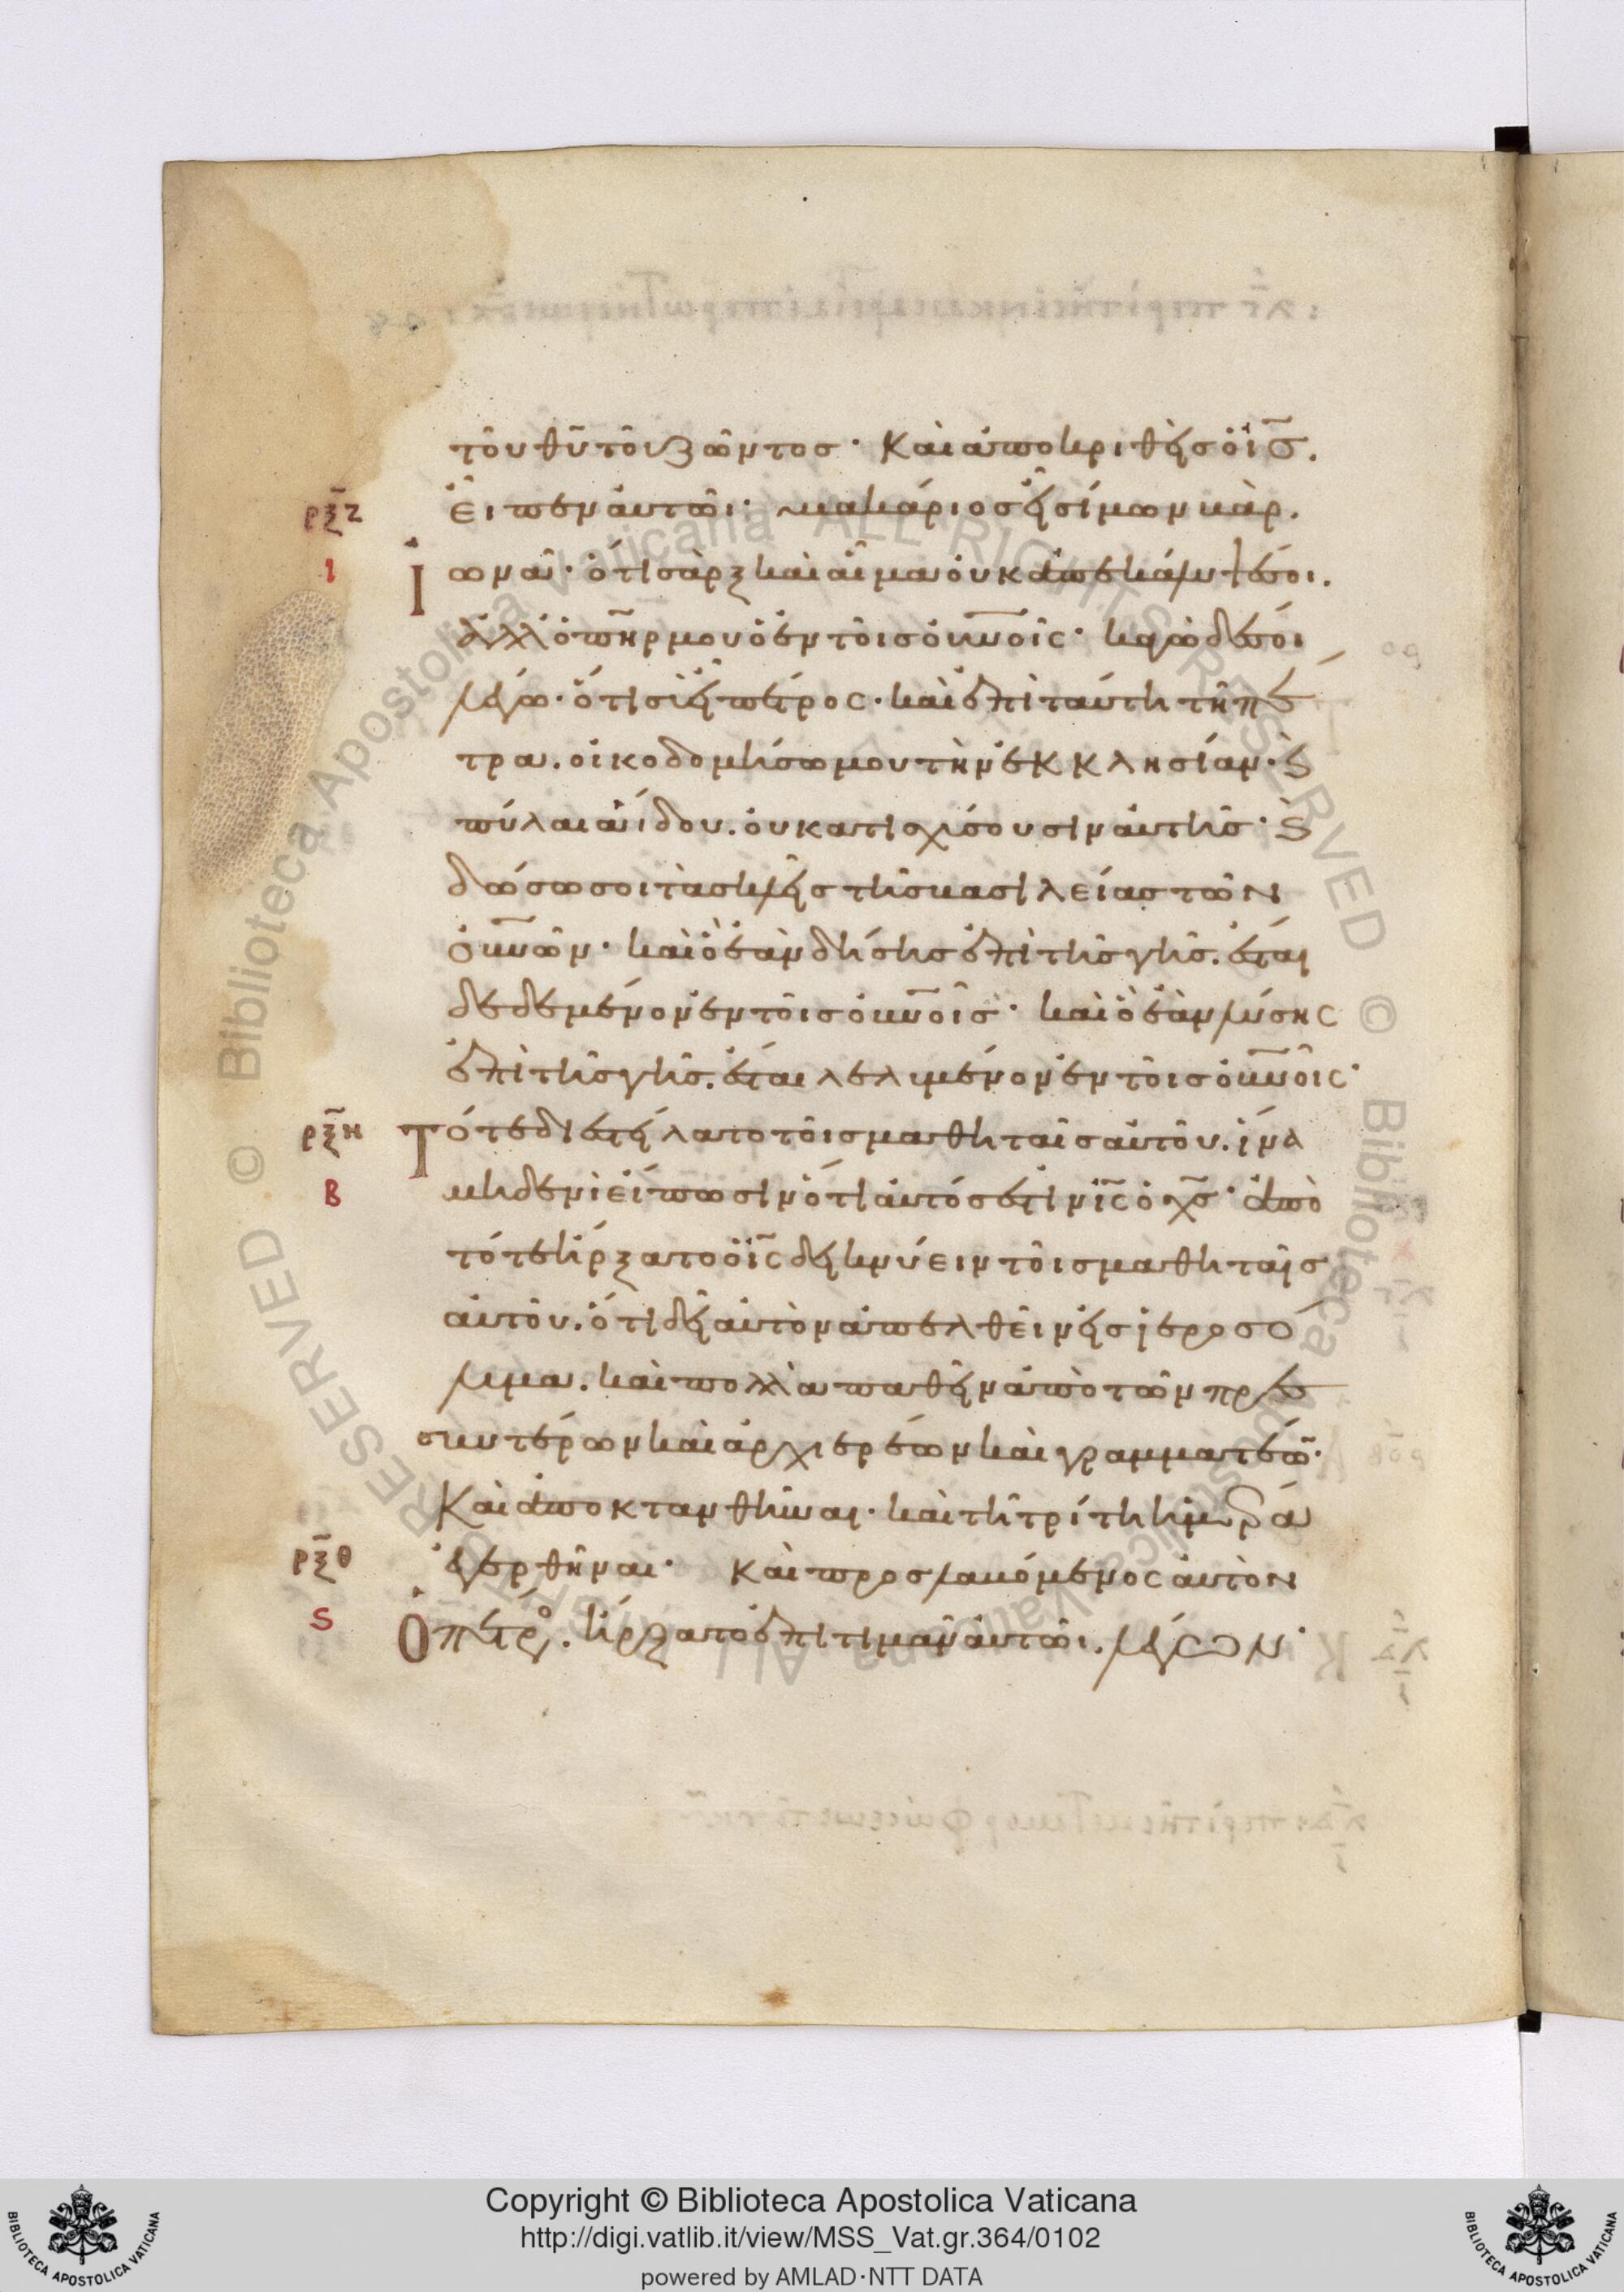 τοῦ θ̅υ̅ τοῦ ζῶντος· Καὶ ἀποκριθεὶς ὁ ι̅ς̅.
εἶπεν αὐτῶι· μακάριος εἶ σίμων βὰρ
ρ̅ξ̅ζ̅
ι
ἰωνᾶ· ὅτι σὰρξ καὶ αἷμα οὐκ ἀπεκάλυψέ σοι.
ἀλλ' ὁ π̅η̅ρ̅ μου ὁ ἐν τοῖς ο̅υ̅ν̅οῖς· κἀγὼ δέ σοι
λέγω· ὅτι σὺ εἶ πέτρος· καὶ ἐπὶ ταύτη τῆ πέ
τρα. οἰκοδομήσω μου τὴν ἐκκλησίαν· ϗ
πύλαι ἅιδου. οὐ κατισχύσουσιν αὐτῆς· ϗ
δώσω σοι τὰς κλεῖς τῆς βασιλείας τῶν
ο̅υ̅ν̅ῶν· καὶ ὃ ἐὰν δήσης ἐπὶ τῆς γῆς. ἔσται
δεδεμένον ἐν τοῖς ο̅υ̅ν̅οῖς· καὶ ὃ ἐὰν λύσης
ἐπὶ τῆς γῆς. ἔσται λελυμένον ἐν τοῖς ο̅υ̅ν̅οῖς·
ρ̅ξ̅η̅
β
Τότε διεστείλατο τοῖς μαθηταῖς αὐτοῦ. ἵνα
μηδενὶ εἴπωσιν ὅτι αὐτός ἐστιν ι̅ς̅ ὁ χ̅ς̅· ἀπὸ
τότε ἤρξατο ὁ ι̅ς̅ δεικνύειν τοῖς μαθηταῖς
αὐτοῦ. ὅτι δεῖ αὐτὸν ἀπελθεῖν εἰς ἱεροσό
λυμα. καὶ πολλὰ παθεῖν ἀπὸ τῶν πρε
σβυτέρων καὶ ἀρχιερέων καὶ γραμματέω̅·
Καὶ ἀποκτανθῆναι· καὶ τῆ τρίτη ἡμέρα
ρ̅ξ̅θ̅
ϛ
ἐγερθῆναι· Καὶ προσλαβόμενος αὐτὸν
Ὁ πέτρο. ἤρξατο ἐπιτιμᾶν αὐτῶι. λέγων·
© Biblioteca Apostolica Vaticana ALL RIGHTS RESERVED
Copyright © Biblioteca Apostolica Vaticana
http://digi.vatlib.it/view/MSS_Vat.gr.364/0102
powered by AMLAD·NTT DATA
BIBLIOTECA APOSTOLICA VATICANA
BIBLIOTECA APOSTOLICA VATICANA